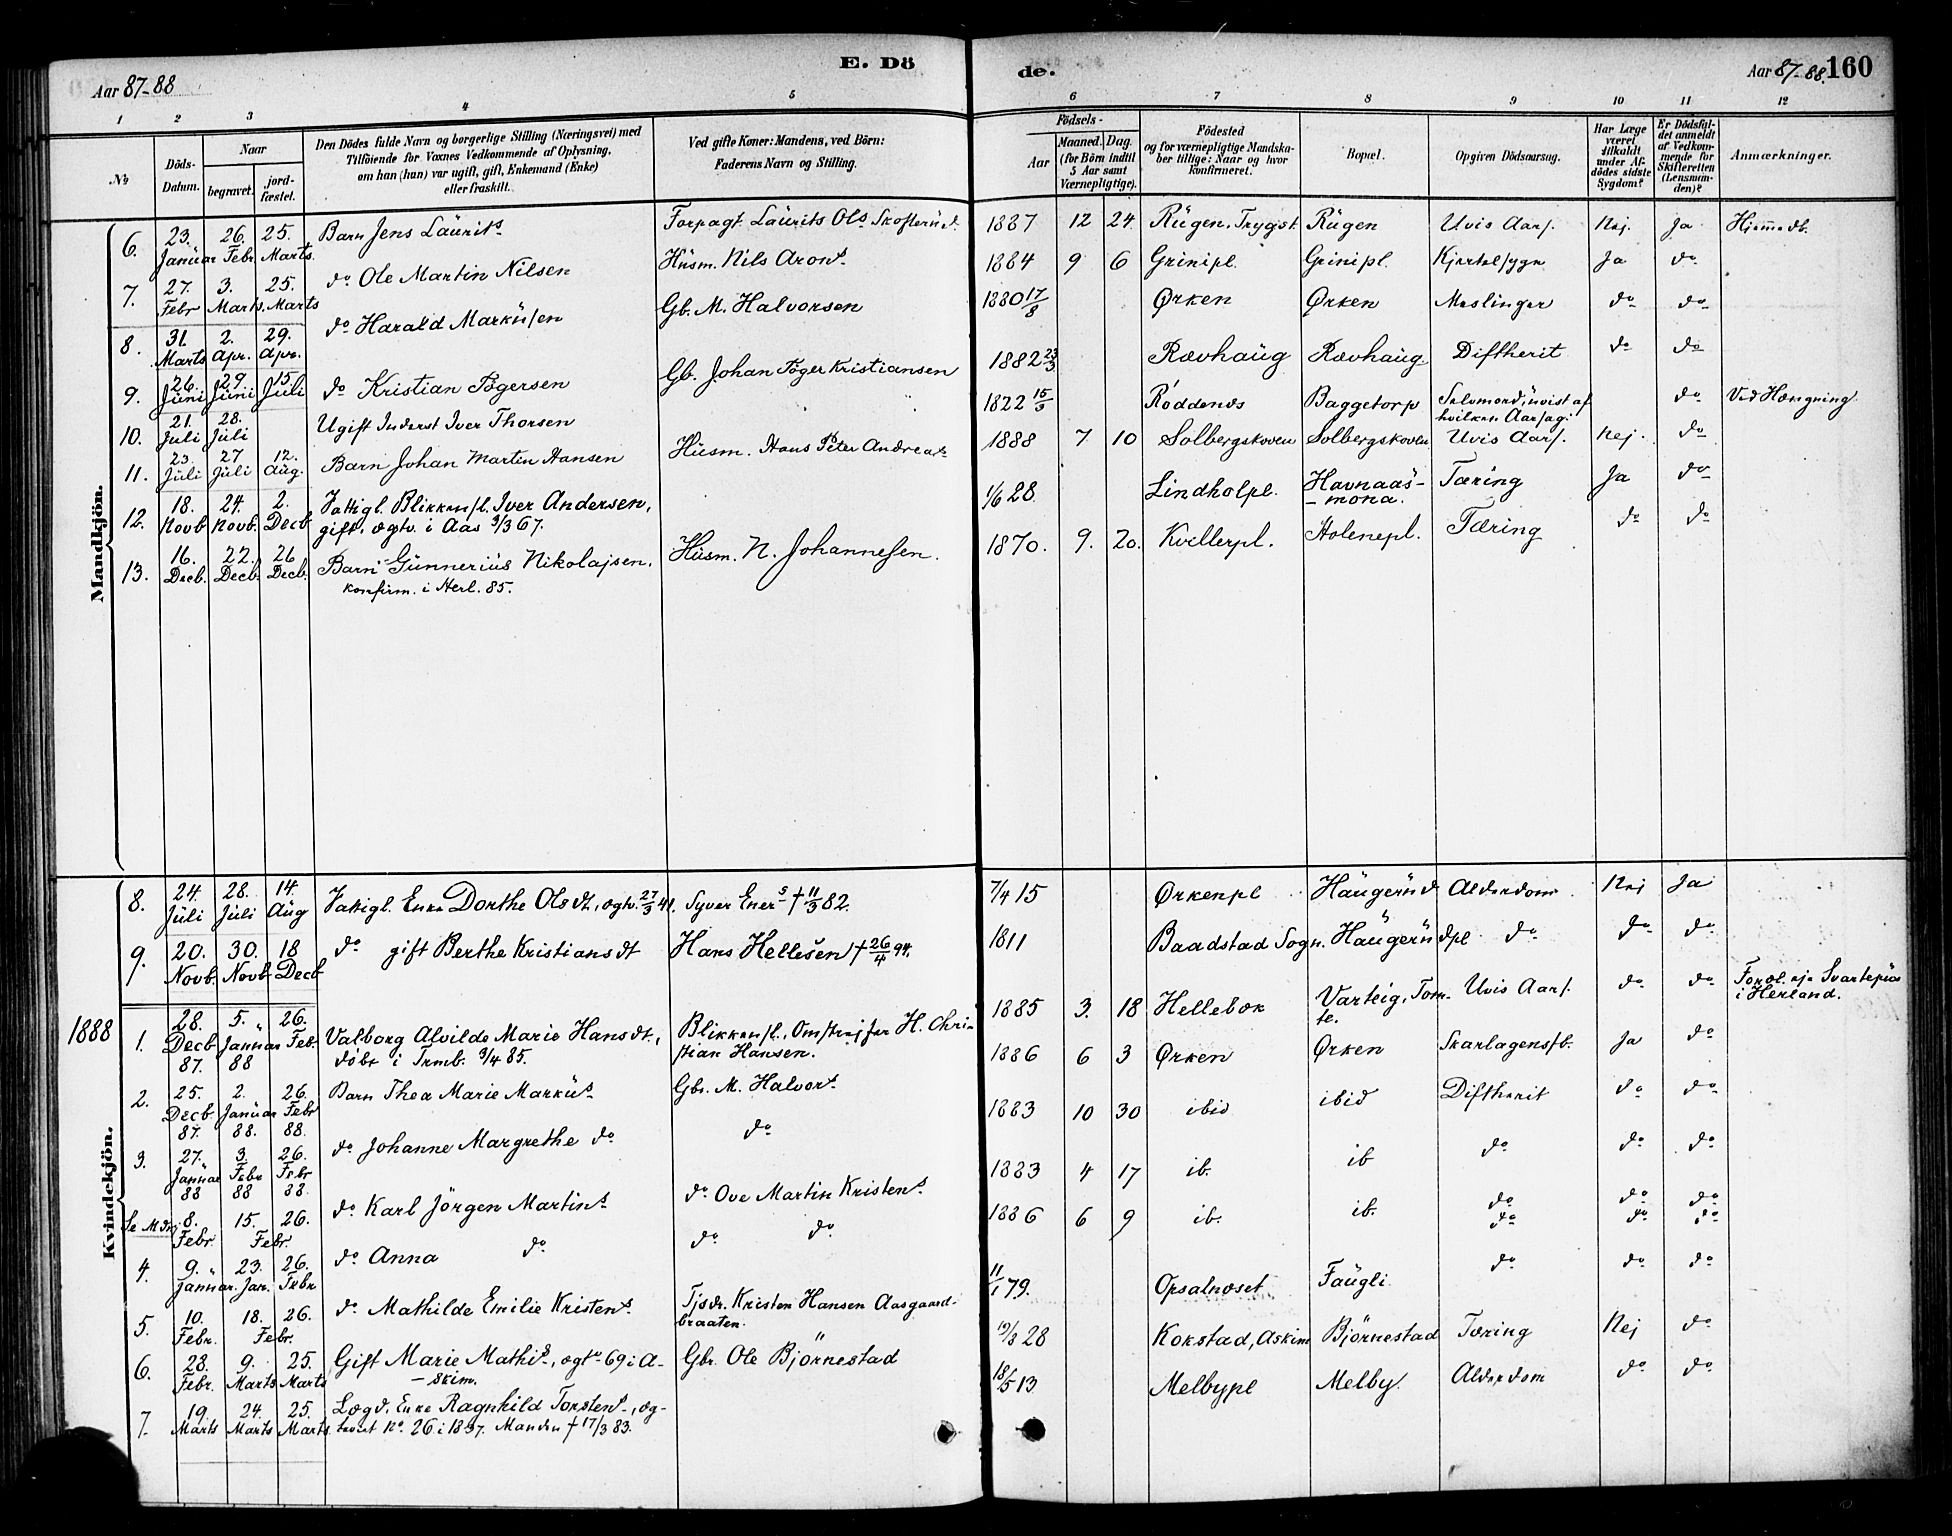 Aar 87-88
E. Dö
de.
Aar 87-88. 160
1 2 3 4 5 6 7 8 9 10 11 12
No
Döds-
Datum.
Naar
begravet.
jord-
fæstet.
Den Dödes fulde Navn og borgerlige Stilling (Næringsvei) med
Tilföiende for Voxnes Vedkommende af Oplysning,
om han (hun) var ugift, gift, Enkemand (Enke)
eller fraskilt.
Ved gifte Koner: Mandens, ved Börn:
Faderens Navn og Stilling.
Födsels-
Aar
Maaned. Dag.
(for Börn indtil
5 Aar samt
Værnepligtige).
Födested
og for værnepligtige Mandska-
ber tillige: Naar og hvor
konfirmeret.
Bopæl.
Opgiven Dödsaarsag.
Har Læge
været
tilkaldt
under Af-
dödes sidste
Sygdom?
Er Dödsfal-
det anmeldt
af Vedkom-
mende for
Skifteretten
(Lensman-
den)?
Anmærkninger.
Mandkjön.
6. 23. Januar 26. Febr 25. Marts. Barn Jens Laurits Forpagt. Laurits Ols. Skofterud. 1887 12 24 Rügen, Trygst. Rügen Uvis Aars. Nej. Ja Hjemmedb.
7. 27. Febr 3. Marts. 25. Marts do Ole Martin Nilsen Husm. Nils Arons. 1884 9 6 Grinipl. Grinipl. Kjertelsyge Ja do
8. 31. Marts 2. Apr. 29. Apr. do Harald Markusen Gb. M. Halvorsen 1880 17/8 Ørken Ørken Meslinger do do
9. 26. Juni 29. Juni 15. Juli do Kristian Tögersen Gb. Johan Töger Kristiansen 1882 23/3 Rævhaug Rævhaug Diftherit do do
10. 21. Juli 28. Juli Ugift Inderst Iver Thorsen 1822 Röddenes Baggetorp Selvmord, uvist af
hvilken Aarsag. do Ved Hængning.
11. 23. Juli 27 Juli 12. Aug. Barn Johan Martin Hansen Husm. Hans Peter Andreas. 1888 7 10 Solbergskoven Solbergskoven Uvis Aars. Nej. do
12. 18. Novb 24. Novb. 2. Decb Fattigl. Blikkensl. Iver Andersen,
gift, ægtv. i Aas 3/3 67. 1/6 28. Lindholpl. Havnaas-
-mona. Tæring Ja do
13. 16. Decb. 22. Decb. 26 Decb. Barn Gunnerius Nikolajsen.
konfirm. i Herl. 85. Husm. N. Johannesen. 1870. 9. 20. Kvillerpl. Holenepl. Tæring do do
Kvindekjön.
8. 24. Juli 28. Juli 14. Aug Fattigl. Enke Dorthe Olsdt., ægtv. 27/3 41. Syver Eners † 11/3 82. 7/4 15 Ørkenpl Haugerud Alderdom. Nej Ja
9. 20. Novb. 30. Novb 18 Decb do gift Berthe Kristiansdt Hans Hellesen † 26/4 94. 1811 Baadstad Sogn. Haugerudpl do do do
1888
1. 28. Decb 87. 5. Januar 88 26. Feb. Valborg Alvilde Marie Hansdt.,
döbt i Trmb. 3/4 85. Blikkensl., Omstrejfer H. Chri-
stian Hansen. 1885 3. 18 Hellebæk Varteig, Tom-
te. Uvis Aars. do do Foræl. eje Svartepus
i Herland.
2. 25. Decb 87. 2. Januar 88. 26. Febr 88. Barn Thea Marie Markus. Gbr. M. Halvors. 1886 6 3 Ørken Ørken Skarlagensfb. Ja do
3. 27. Januar 88 3. Febr 88 26. Febr 88. do Johanne Margrethe do do 1883 10 30 ibid ibid Diftherit do do
Se M.dn. 8. Febr. 15. Febr. 26. do Karl Jörgen Martins. do Ove Martin Kristens. 1883 4 17 ib. ib do do do
4. 9. Januar. 23. Jan. 26. Febr do Anna do do do 1886 6 9 ib. ib. do do do
do do do
5. 10. Febr. 18. Febr. 26. do Mathilde Emilie Kristens. Tjsdr. Kristen Hansen Aasgaard-
braaten. 11/1 79. Opsalnæset Faugli do do do
6. 28. Febr. 9. Marts 25. Marts Gift Marie Mathis., ægtv 69 i A-
-skim. Gbr. Ole Björnestad 19/3 28 Kokstad, Askim Björnestad Tæring Nej do
7. 19. Marts 24. Marts 25. Marts. Lægd. Enke Ragnhild Torstens., æg-
teviet No. 26 i 1837. Manden † 17/3 83. 18/5 13 Melbypl Melby. Alderdom do do